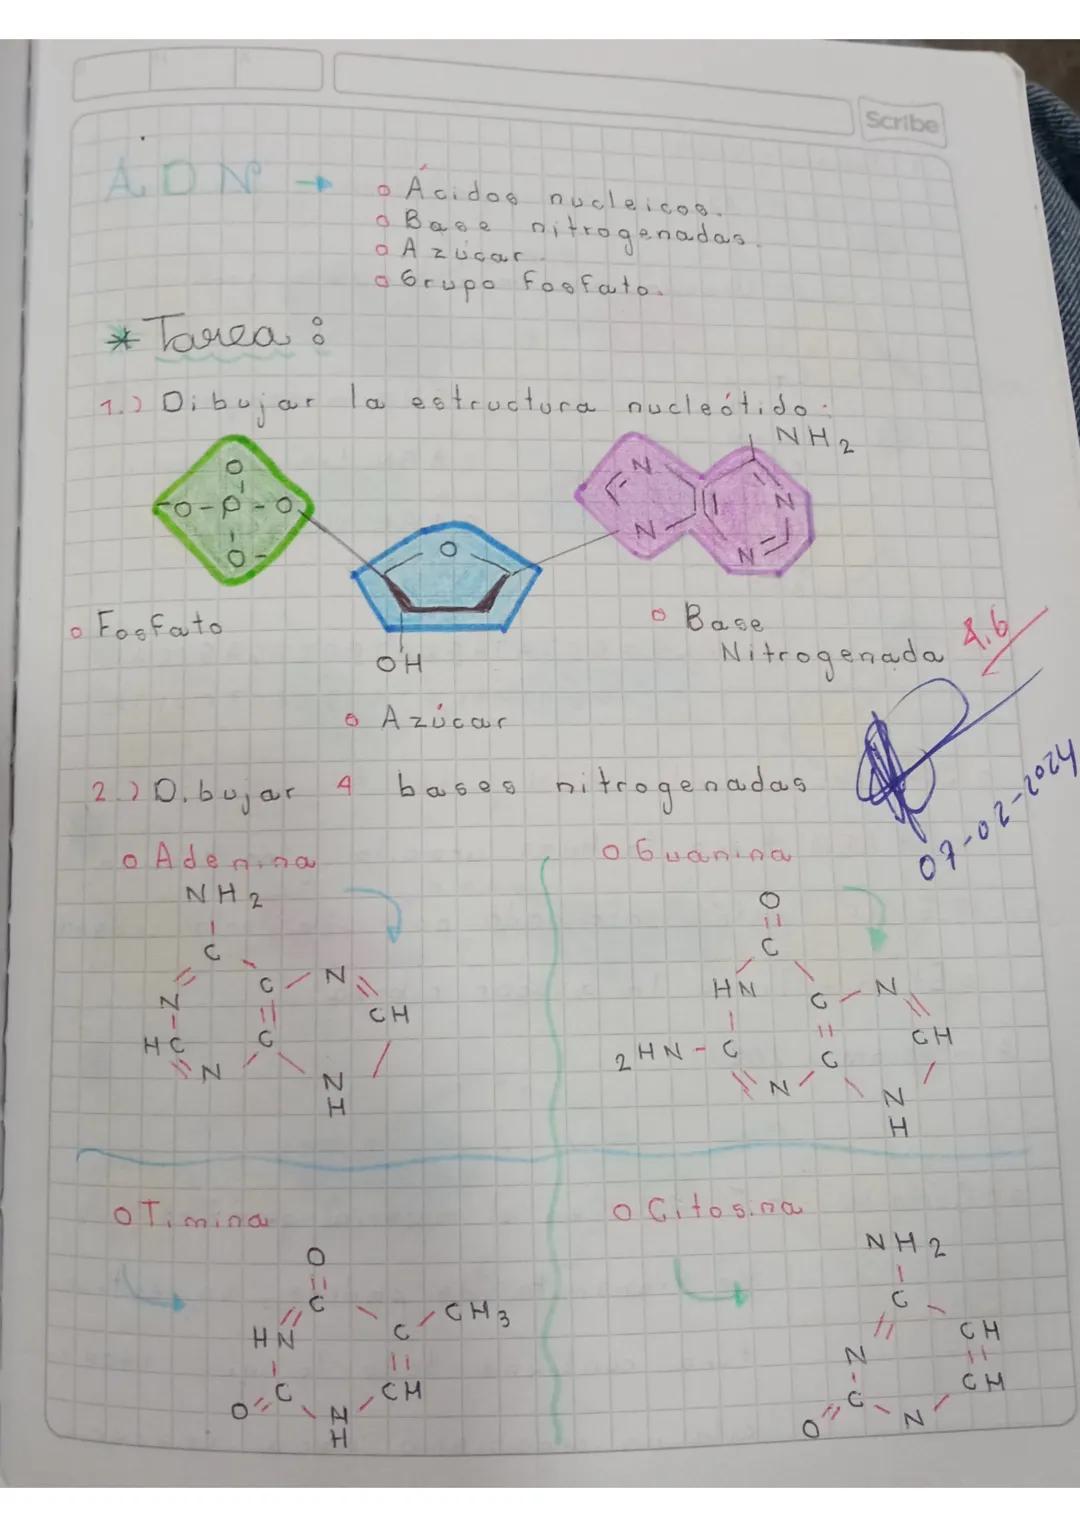 Scribe
ADN → o Ácidos nucleicos.
o Base nitrogenadas.
o Azúcar.
o Grupo Fosfato.
* Tarea:
1.) Dibujar la estructura nucleótido:
NH2
O
-O-P-O
O-
O
N
N
N
N
o Fosfato
OH
o Base
Nitrogenada
4.6
o Azúcar
07-02-2024
2.) Dibujar 4 bases nitrogenadas
o Adenina
NH2
C
N C N
CH
HC C
N
NH
o Guanina
O
C
HN C N
CH
2HN-C C
N
NH
o Timina
O
C
HN C CH3
C CH
O
NH
o Citosina
NH2
C
CH
N
CH
C
O N